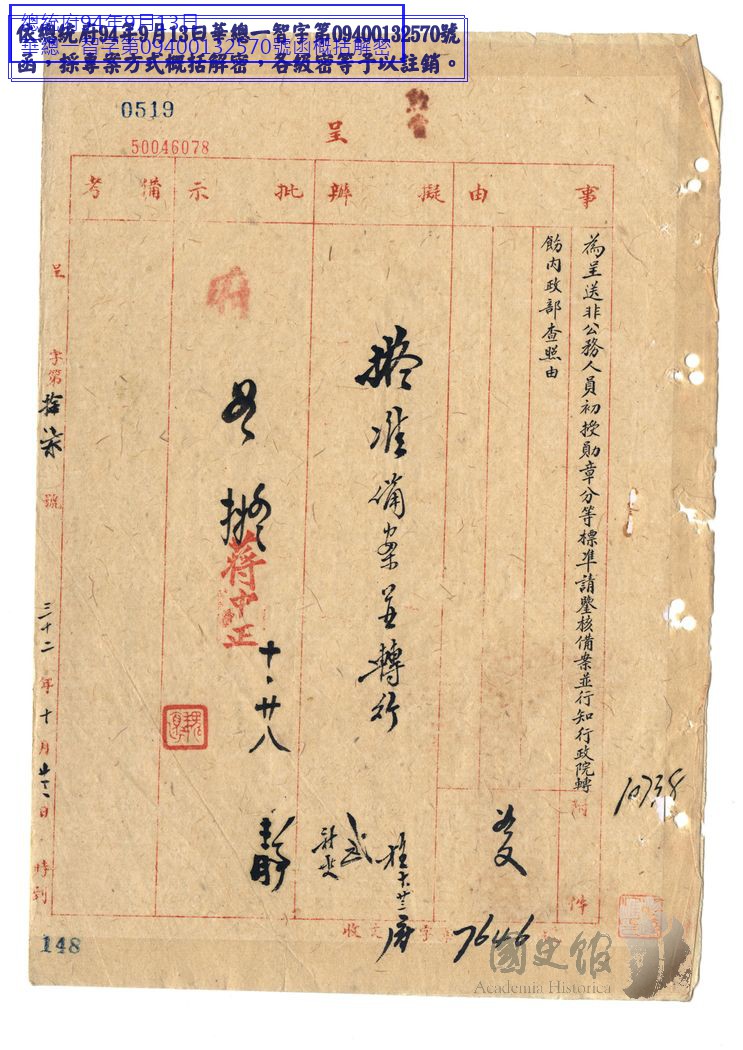 總統府94年9月13日
華總一智字第09400132570號函概括解密
依總統府94年9月13日華總一智字第09400132570號
函,採專案方式概括解密,各級密等予以註銷。
0519
50046078
呈
事由
擬辦
批示
備考
為呈送非公務人員初授勛章分等標準請鑒核備案並行知行政院轉
飭內政部查照由
附件
擬准備案並轉行
如擬
蔣中正
十、廿八
呈 字第拾柒號 三十二年十月廿二日 時到
收文 字 7646
10758
148
國史館
Academia Historica